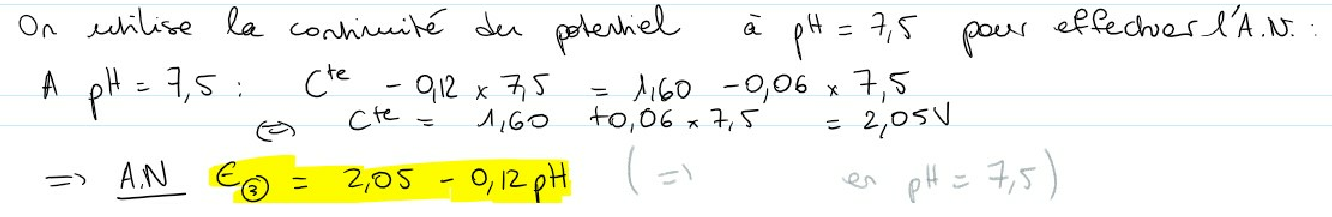 On utilise la continuité du potentiel à pH = 7,5 pour effectuer l'A.N. :
A pH = 7,5 : Cte - 0,12 x 7,5 = 1,60 - 0,06 x 7,5
⇔ Cte = 1,60 + 0,06 x 7,5 = 2,05V
=> A.N E③ = 2,05 - 0,12 pH (=> en pH = 7,5)